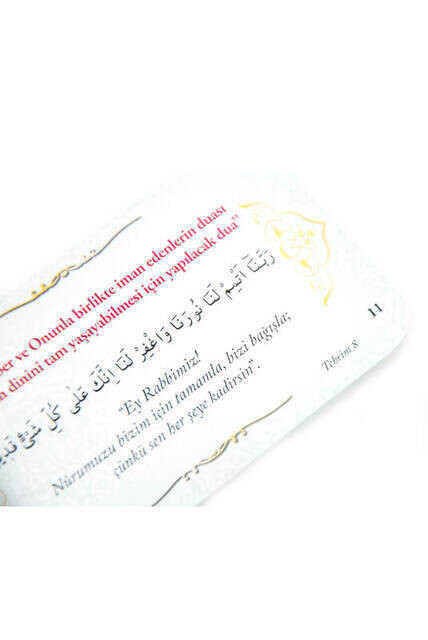 ber ve Onunla birlikte iman edenlerin duası
n dinini tam yaşayabilmesi için yapılacak dua"
رَبَّنَا اَتْمِمْ لَنَا نُورَنَا وَاغْفِرْ لَنَا اِنَّكَ عَلٰى كُلِّ شَيْءٍ قَدِي
"Ey Rabbimiz!
Nûrumuzu bizim için tamamla, bizi bağışla;
çünkü sen her şeye kadirsin".
Tehrim 8
11